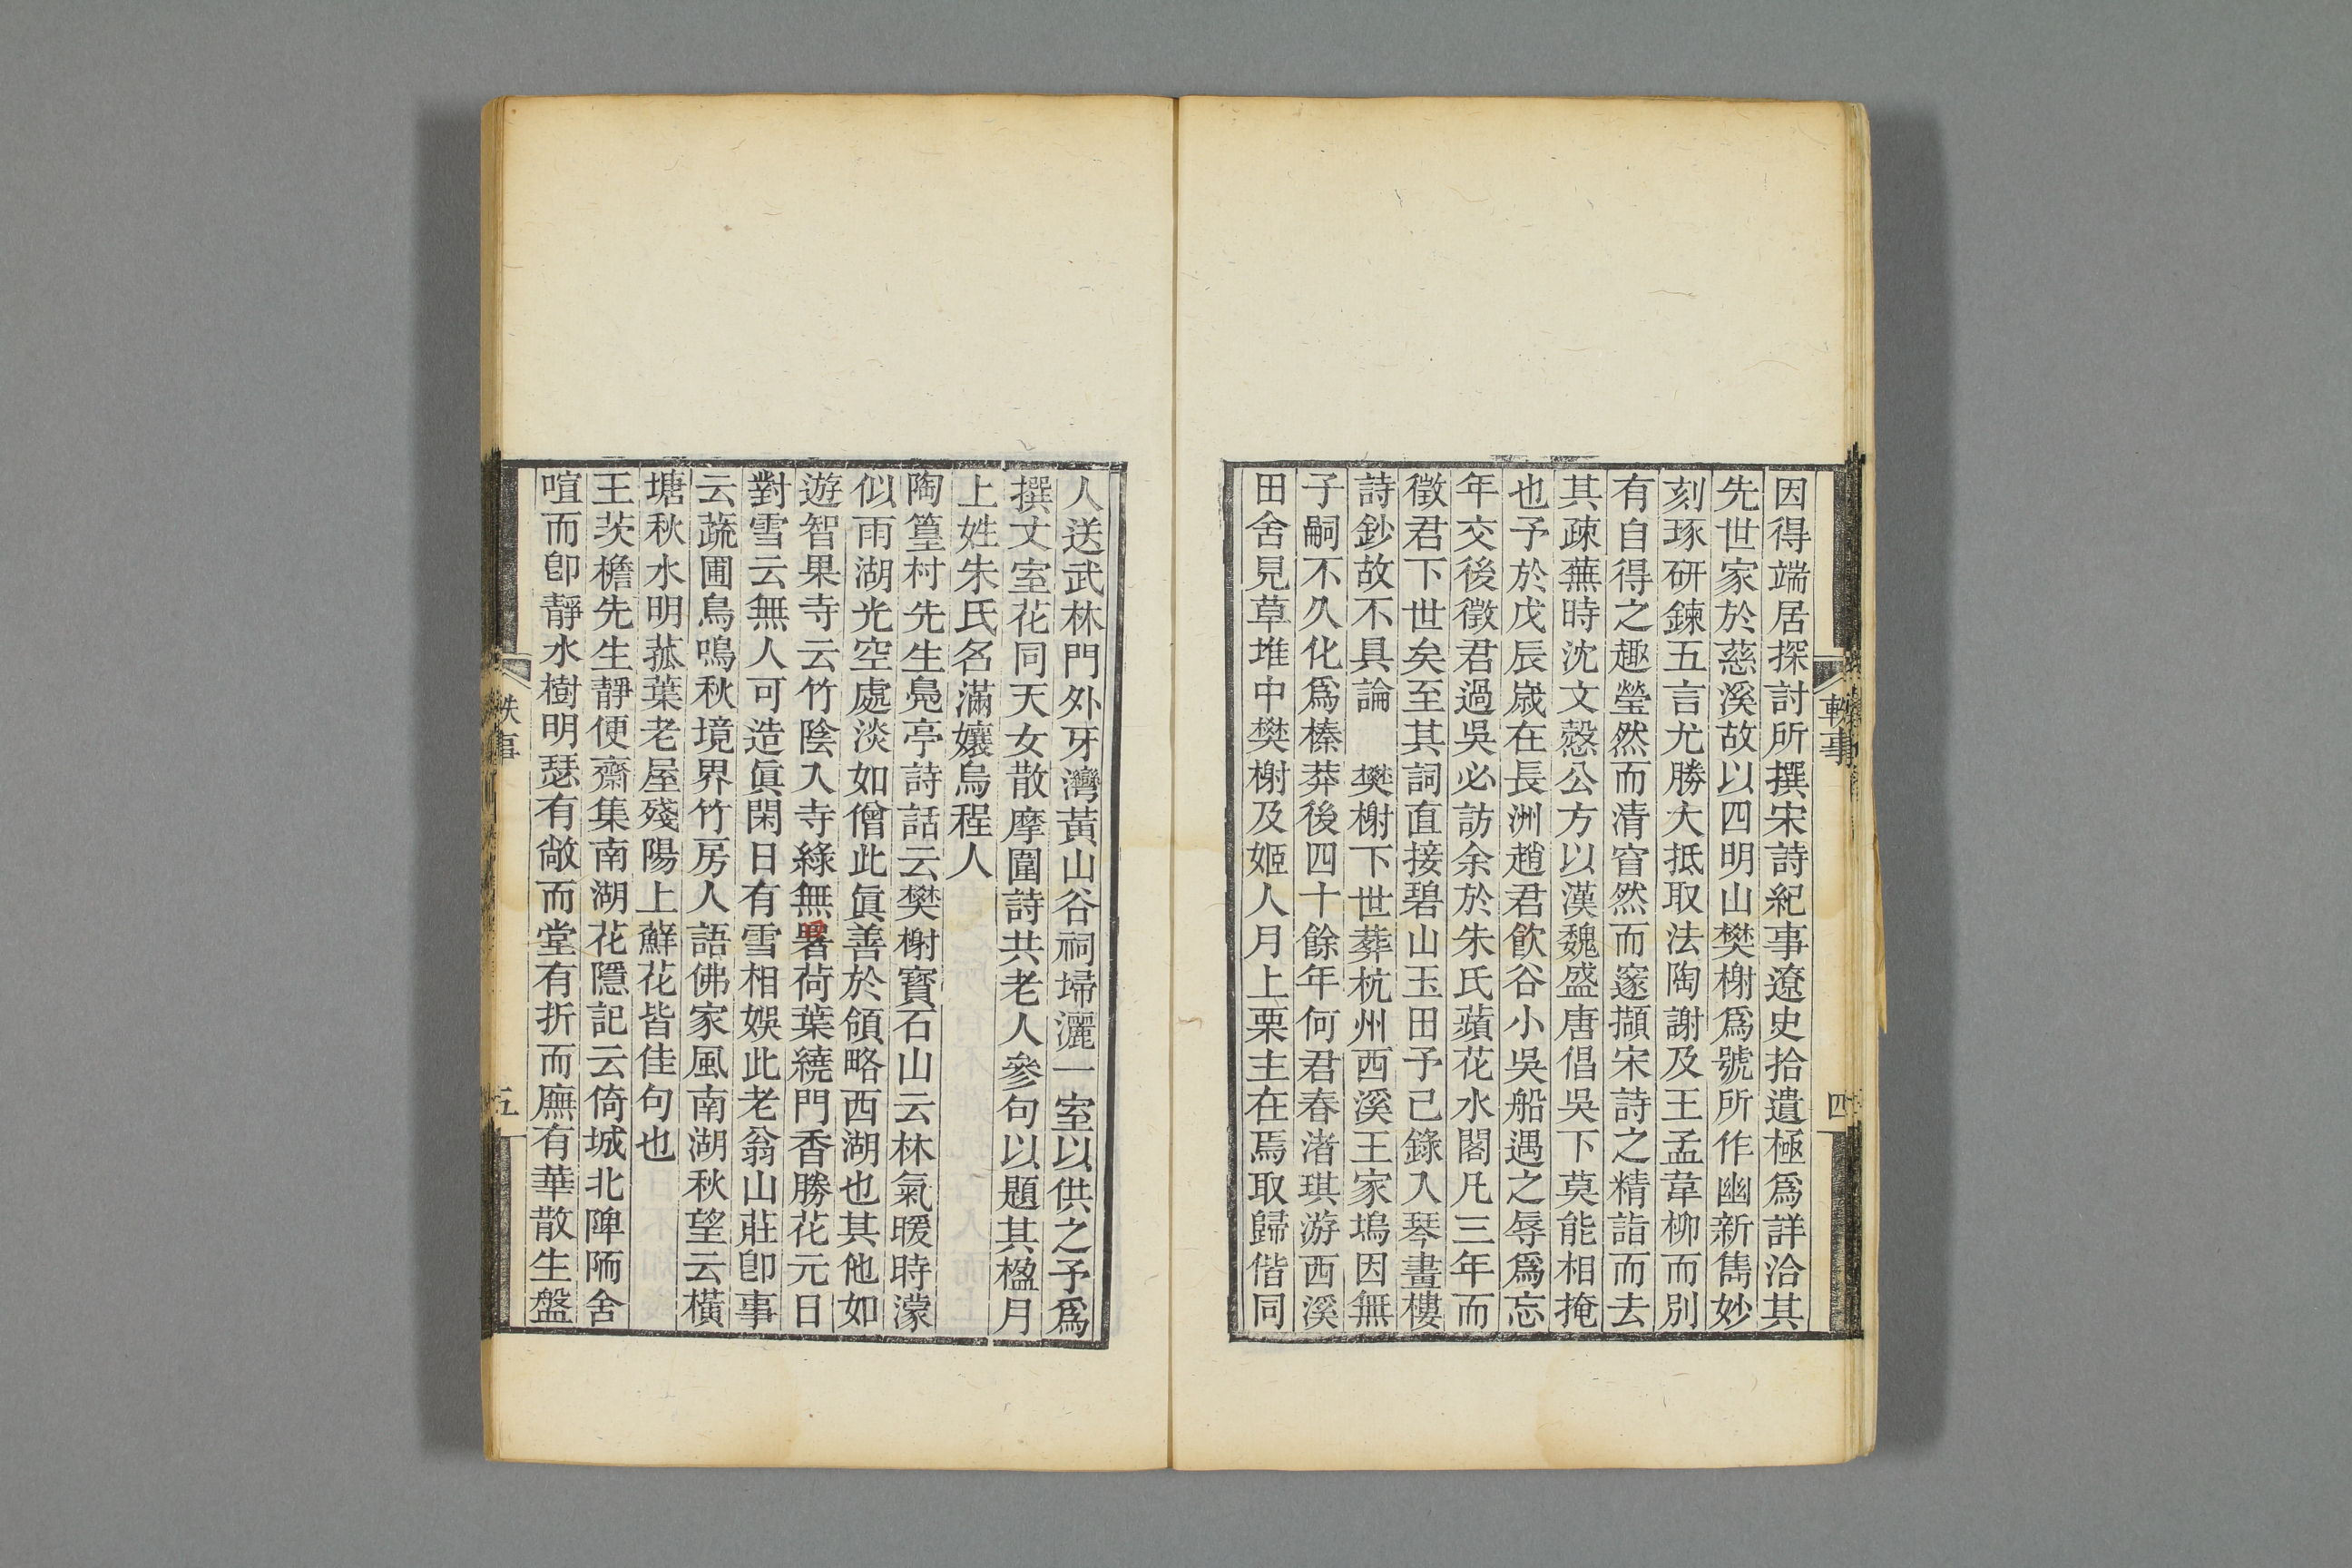 軼事
四
因得端居探討所撰宋詩紀事遼史拾遺極爲詳洽其
先世家於慈溪故以四明山樊榭爲號所作幽新雋妙
刻琢研鍊五言尤勝大抵取法陶謝及王孟韋柳而別
有自得之趣瑩然而清窅然而邃擷宋詩之精詣而去
其疎蕪時沈文慤公方以漢魏盛唐倡吳下莫能相掩
也予於戊辰歲在長洲趙君飲谷小吳船遇之辱爲忘
年交後徵君過吳必訪余於朱氏蘋花水閣凡三年而
徵君下世矣至其詞直接碧山玉田予己錄入琴畫樓
詩鈔故不具論　樊榭下世葬杭州西溪王家塢因無
子嗣不久化爲榛莽後四十餘年何君春渚琪游西溪
田舍見草堆中樊榭及姬人月上栗主在焉取歸偕同
人送武林門外牙灣黃山谷祠埽灑一室以供之予爲
撰丈室花同天女散摩圍詩共老人參句以題其楹月
上姓朱氏名滿孃烏程人
陶篁村先生鳧亭詩話云樊榭寶石山云林氣暖時濛
似雨湖光空處淡如僧此眞善於領略西湖也其他如
遊智果寺云竹陰入寺綠無暑荷葉繞門香勝花元日
對雪云無人可造眞閑日有雪相娛此老翁山莊卽事
云蔬圃鳥鳴秋境界竹房人語佛家風南湖秋望云橫
塘秋水明菰葉老屋殘陽上蘚花皆佳句也
王茨檐先生靜便齋集南湖花隱記云倚城北陴陑舍
喧而卽靜水樹明瑟有敞而堂有折而廡有華散生盤
軼事
五